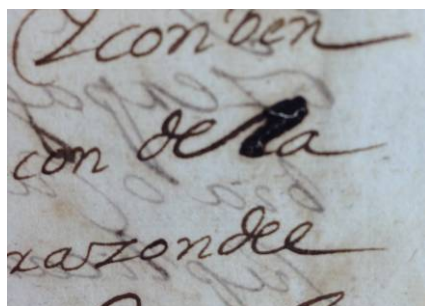 Y con ben
con de la
razon del